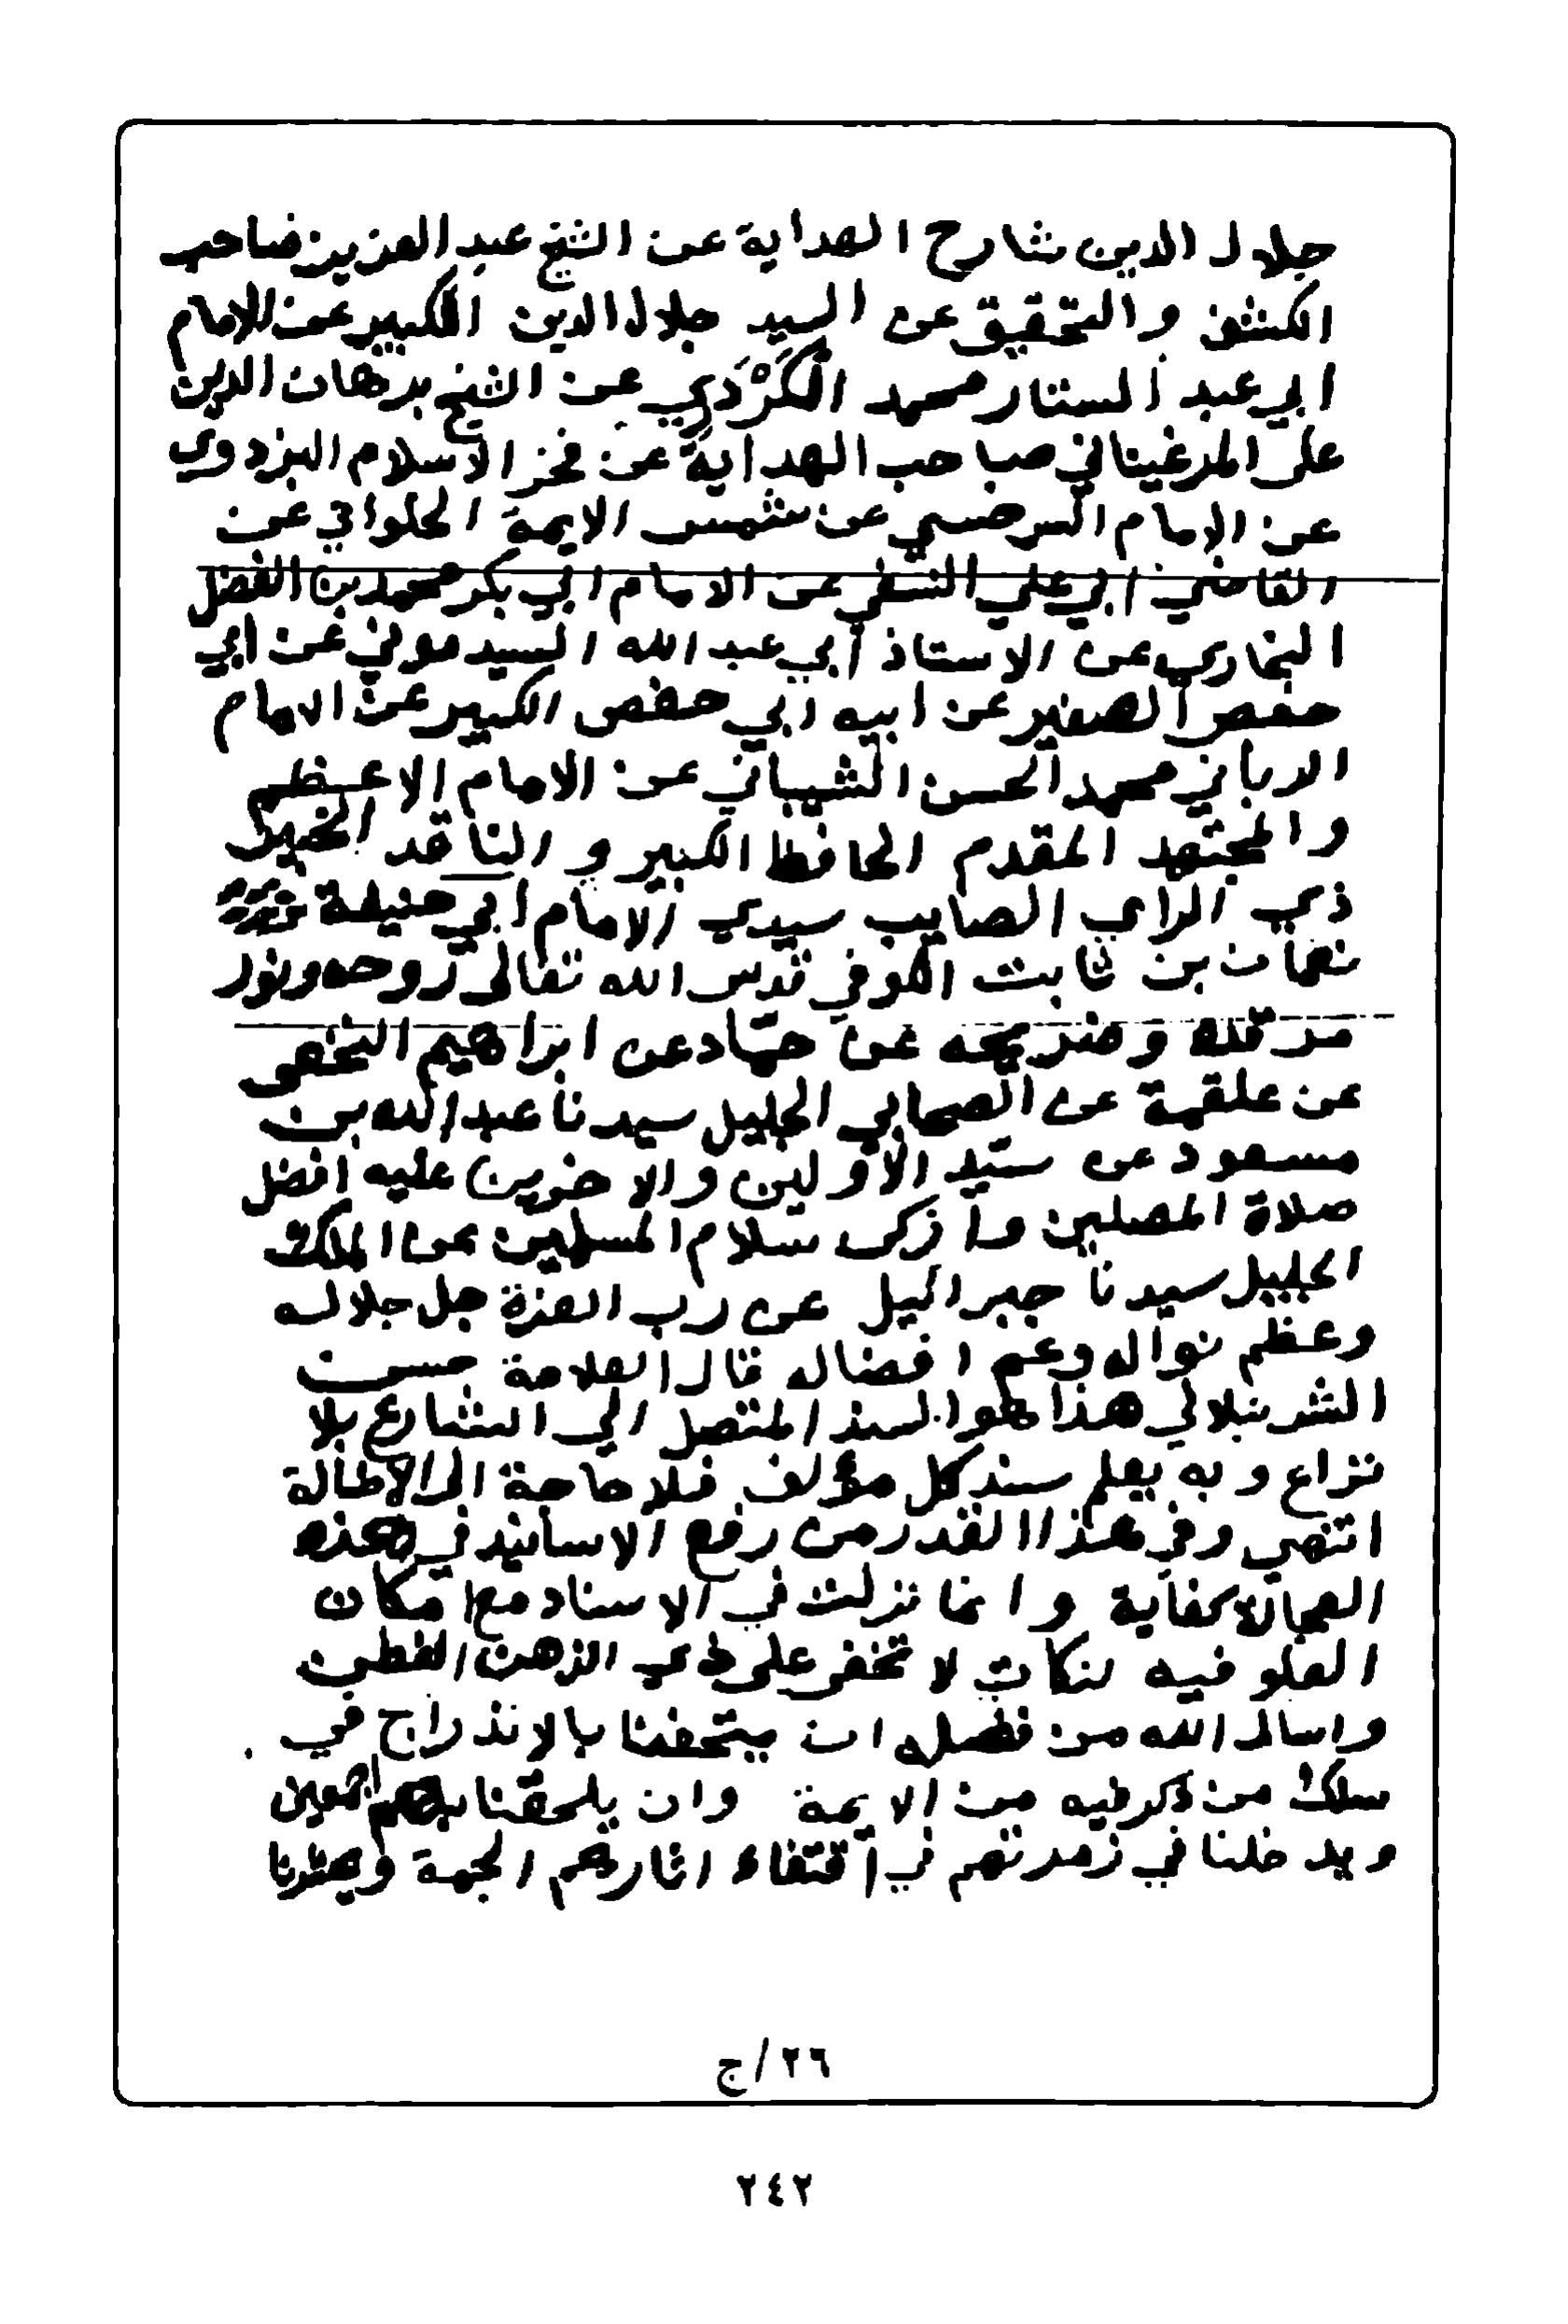 جلال الدين شارح الهداية عن الشيخ عبد العزيز صاحب
الكشف والتحقيق عن السيد جلال الدين الكبير عن الامام
ابي عبد الستار محمد الكَرْدَري عن الشيخ برهان الدين
على المرغيناني صاحب الهداية عن فخر الاسلام البزدوى
عن الامام السرخسي عن شمس الايمة الحلواني عن
القاضي ابي علي النسفى عن الامام ابي بكر محمد بن الفضل
البخاري عن الاستاذ أبي عبد الله السيدموني عن ابي
حفص الصغير عن ابيه ابي حفص الكبير عن الامام
الرباني محمد الحسن الشيباني عن الامام الاعظم
والمجتهد المقدم الحافظ الكبير و الناقد الخبير
ذي الراي الصايب سيدي الامام ابي حنيفة
نعمان بن ثابت الكوفي قدس الله تعالى روحه ونور
مرقده وضريحه عن حمّاد عن ابراهيم النخعى
عن علقمة عن الصحابي الجليل سيدنا عبد الله بن
مسعود عن سيّد الأولين والاخرين عليه افضل
صلاة المصلين وازكى سلام المسلمين عن الملك
الجليل سيدنا جبرائيل عن رب العزة جل جلاله
وعظم نواله وعم افضاله قال العلامة حسن
الشرنبلالي هذا هو السند المتصل الي الشارع بلا
نزاع وبه يعلم سند كل مؤلف فلا حاجة الى الاطالة
انتهى وفي هذا القدر من رفع الاسانيد في هذه
العجالة كفاية وانما نزلت في الاسناد مع امكان
العلو فيه لنكات لا تخفى على ذي الذهن الفطن
واسال الله من فضله ان يتحفنا بالانذراج في
سلك من ذكر فيه من الايمة وان يلحقنا بهم اجمعين
ويدخلنا في زمرتهم في أقتفاء اثارهم الجمة ويحشرنا
٢٦/ج
٢٤٢